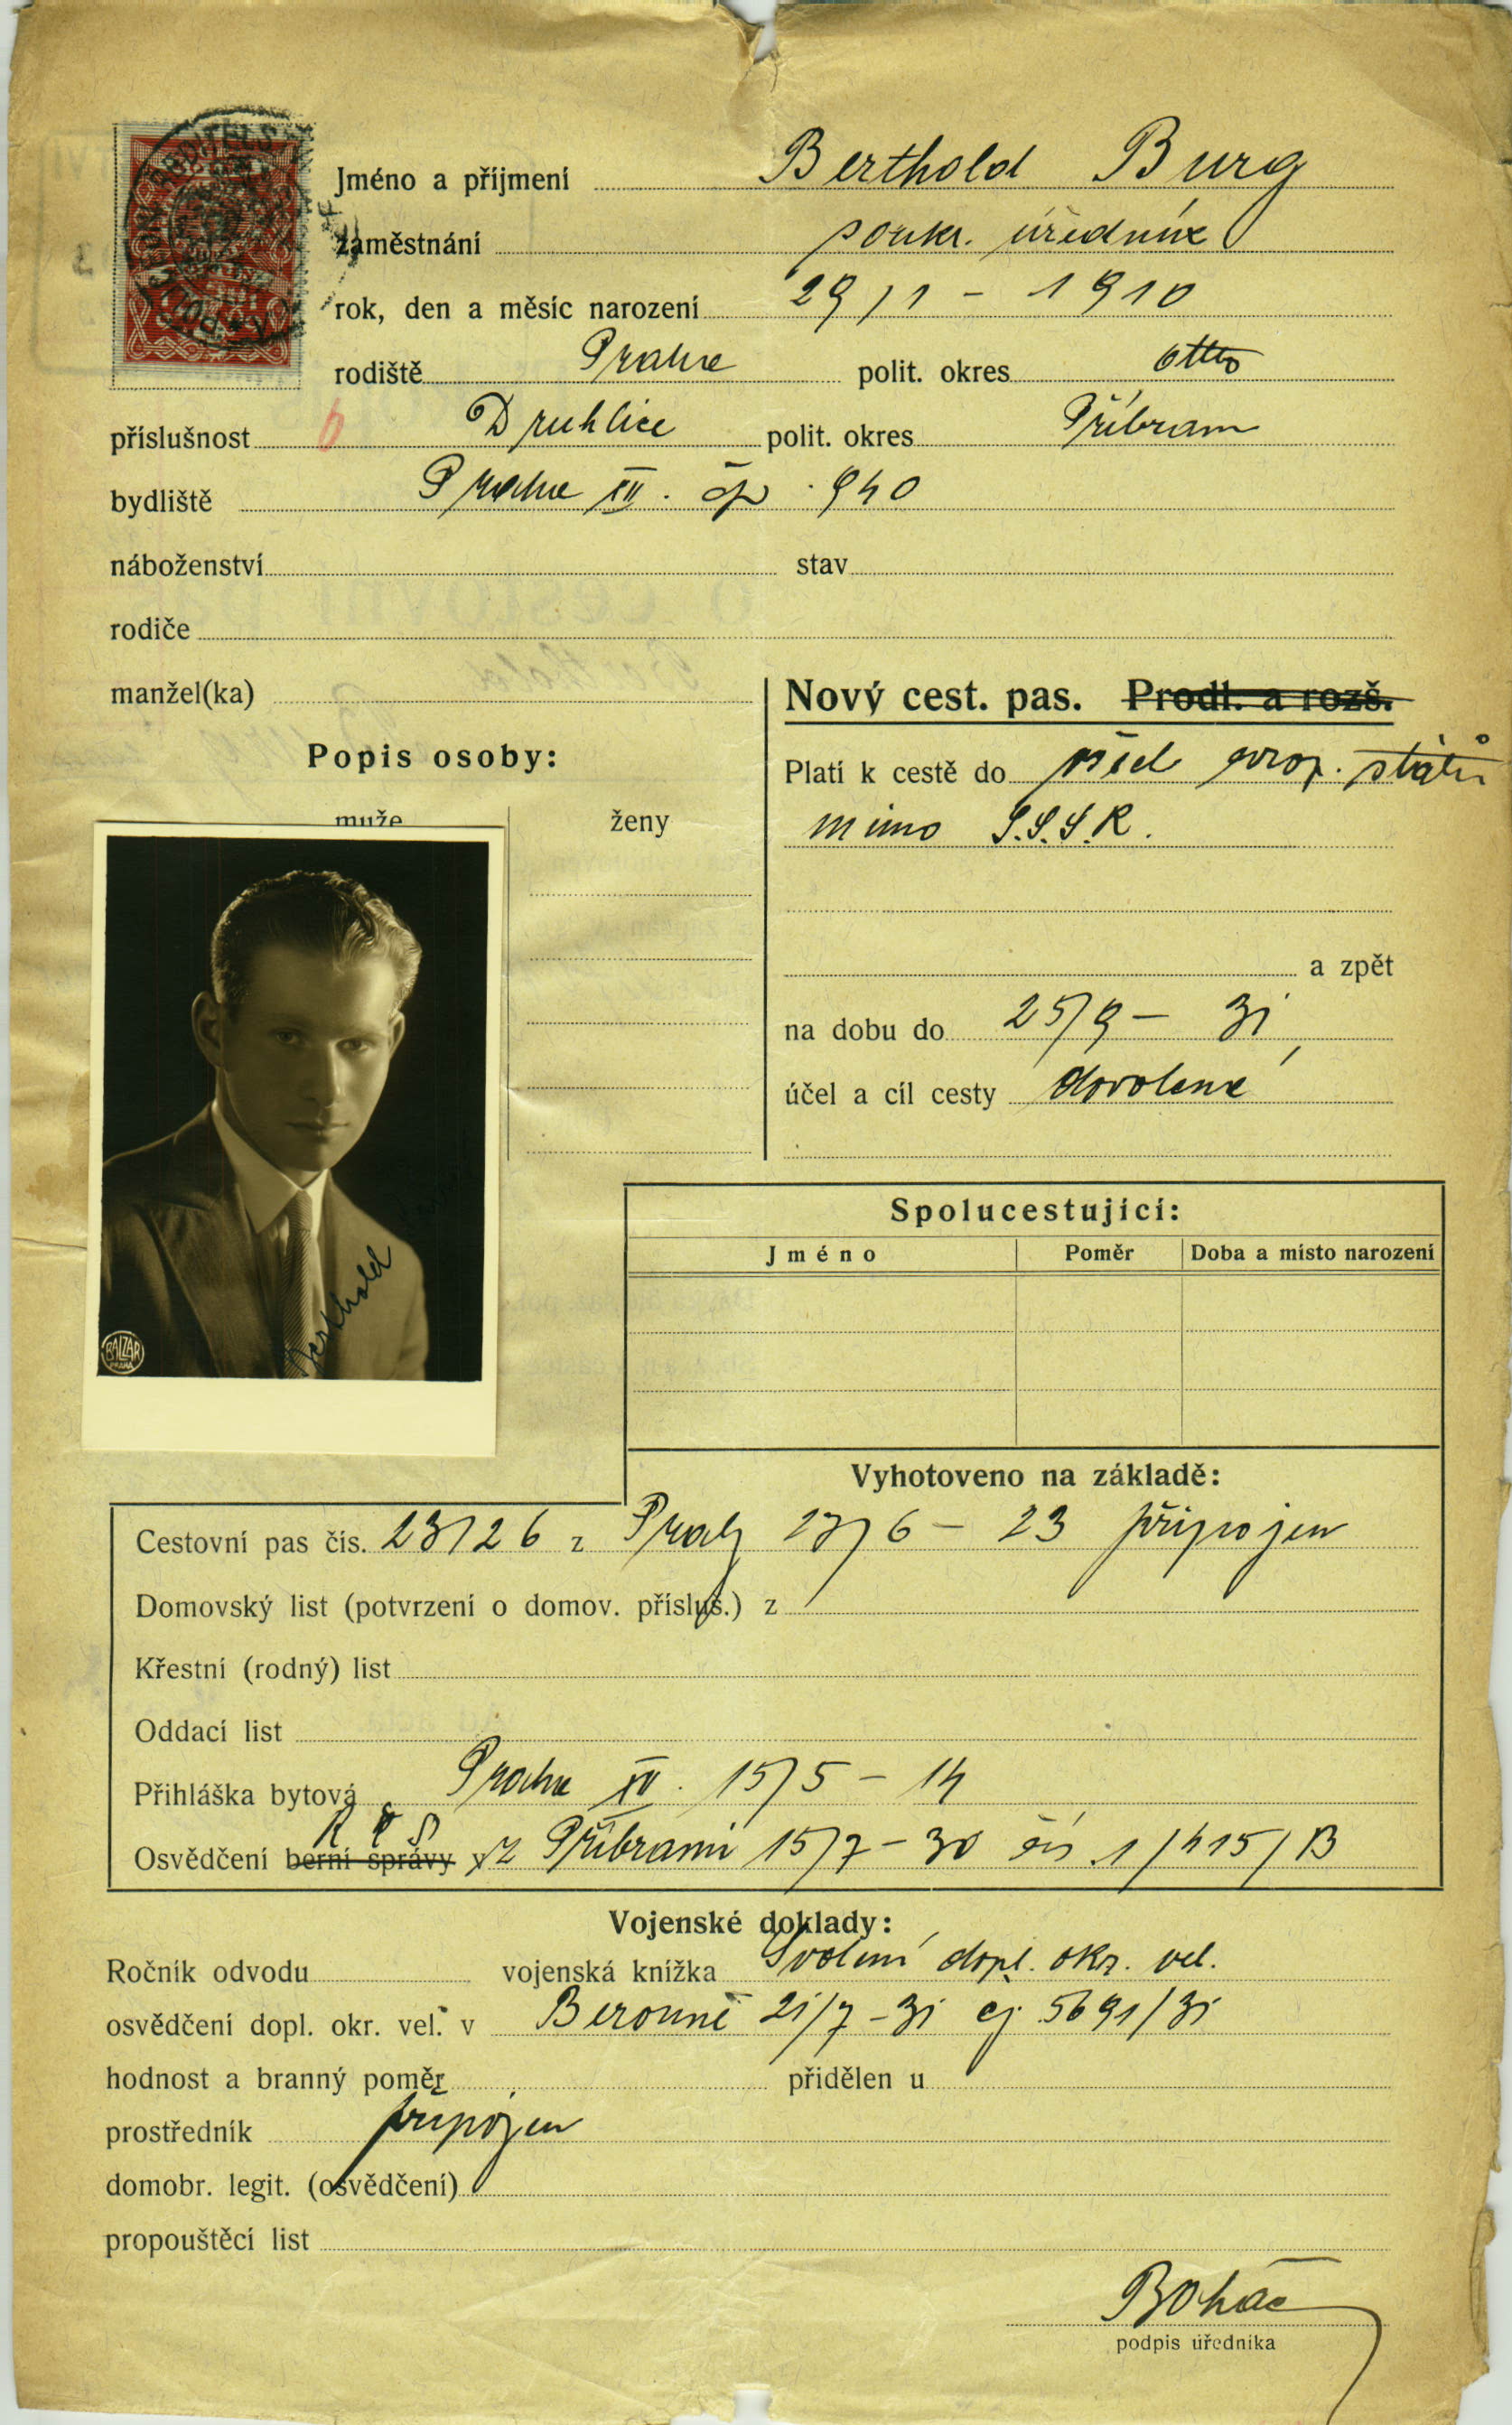 Jméno a příjmení Berthold Burg
zaměstnání soukr. úředník
rok, den a měsíc narození 29/1 - 1910
rodiště Praha polit. okres
příslušnost Druhlice polit. okres Příbram
bydliště Praha XII. čp. 940
náboženství stav
rodiče
manžel(ka)
Nový cest. pas. Prodl. a rozš.
Popis osoby:
Platí k cestě do všech evrop. států
muže ženy
mimo S.S.S.R.
a zpět
na dobu do 25/9 - 31
účel a cíl cesty dovolená
Berthold
BALZAR
PRAHA
Spolucestující:
Jméno Poměr Doba a místo narození
Vyhotoveno na základě:
Cestovní pas čís. 23126 z Prahy 6 - 23 připojen
Domovský list (potvrzení o domov. přísluš.) z
Křestní (rodný) list
Oddací list
Přihláška bytová Praha 15/5 - 14
Osvědčení berní správy z Příbrami 15/7 - 30 čís. 1/415/B
Vojenské doklady:
Ročník odvodu vojenská knížka Svolení dopl. okr. vel.
osvědčení dopl. okr. vel. v Berouně 21/7 - 31 čj. 5691/31
hodnost a branný poměr přidělen u
prostředník připojen
domobr. legit. (osvědčení)
propouštěcí list
Boháč
podpis úředníka